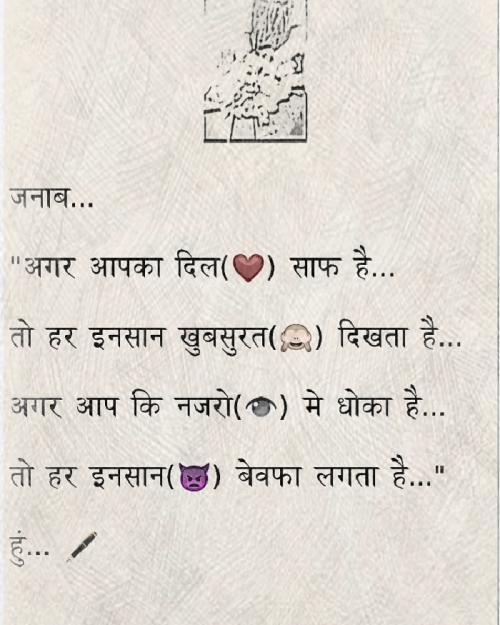 जनाब...
"अगर आपका दिल(❤️) साफ है...
तो हर इनसान खुबसुरत(🙈) दिखता है...
अगर आप कि नजरो(👁️) मे धोका है...
तो हर इनसान(👿) बेवफा लगता है..."
हुं... 🖋️